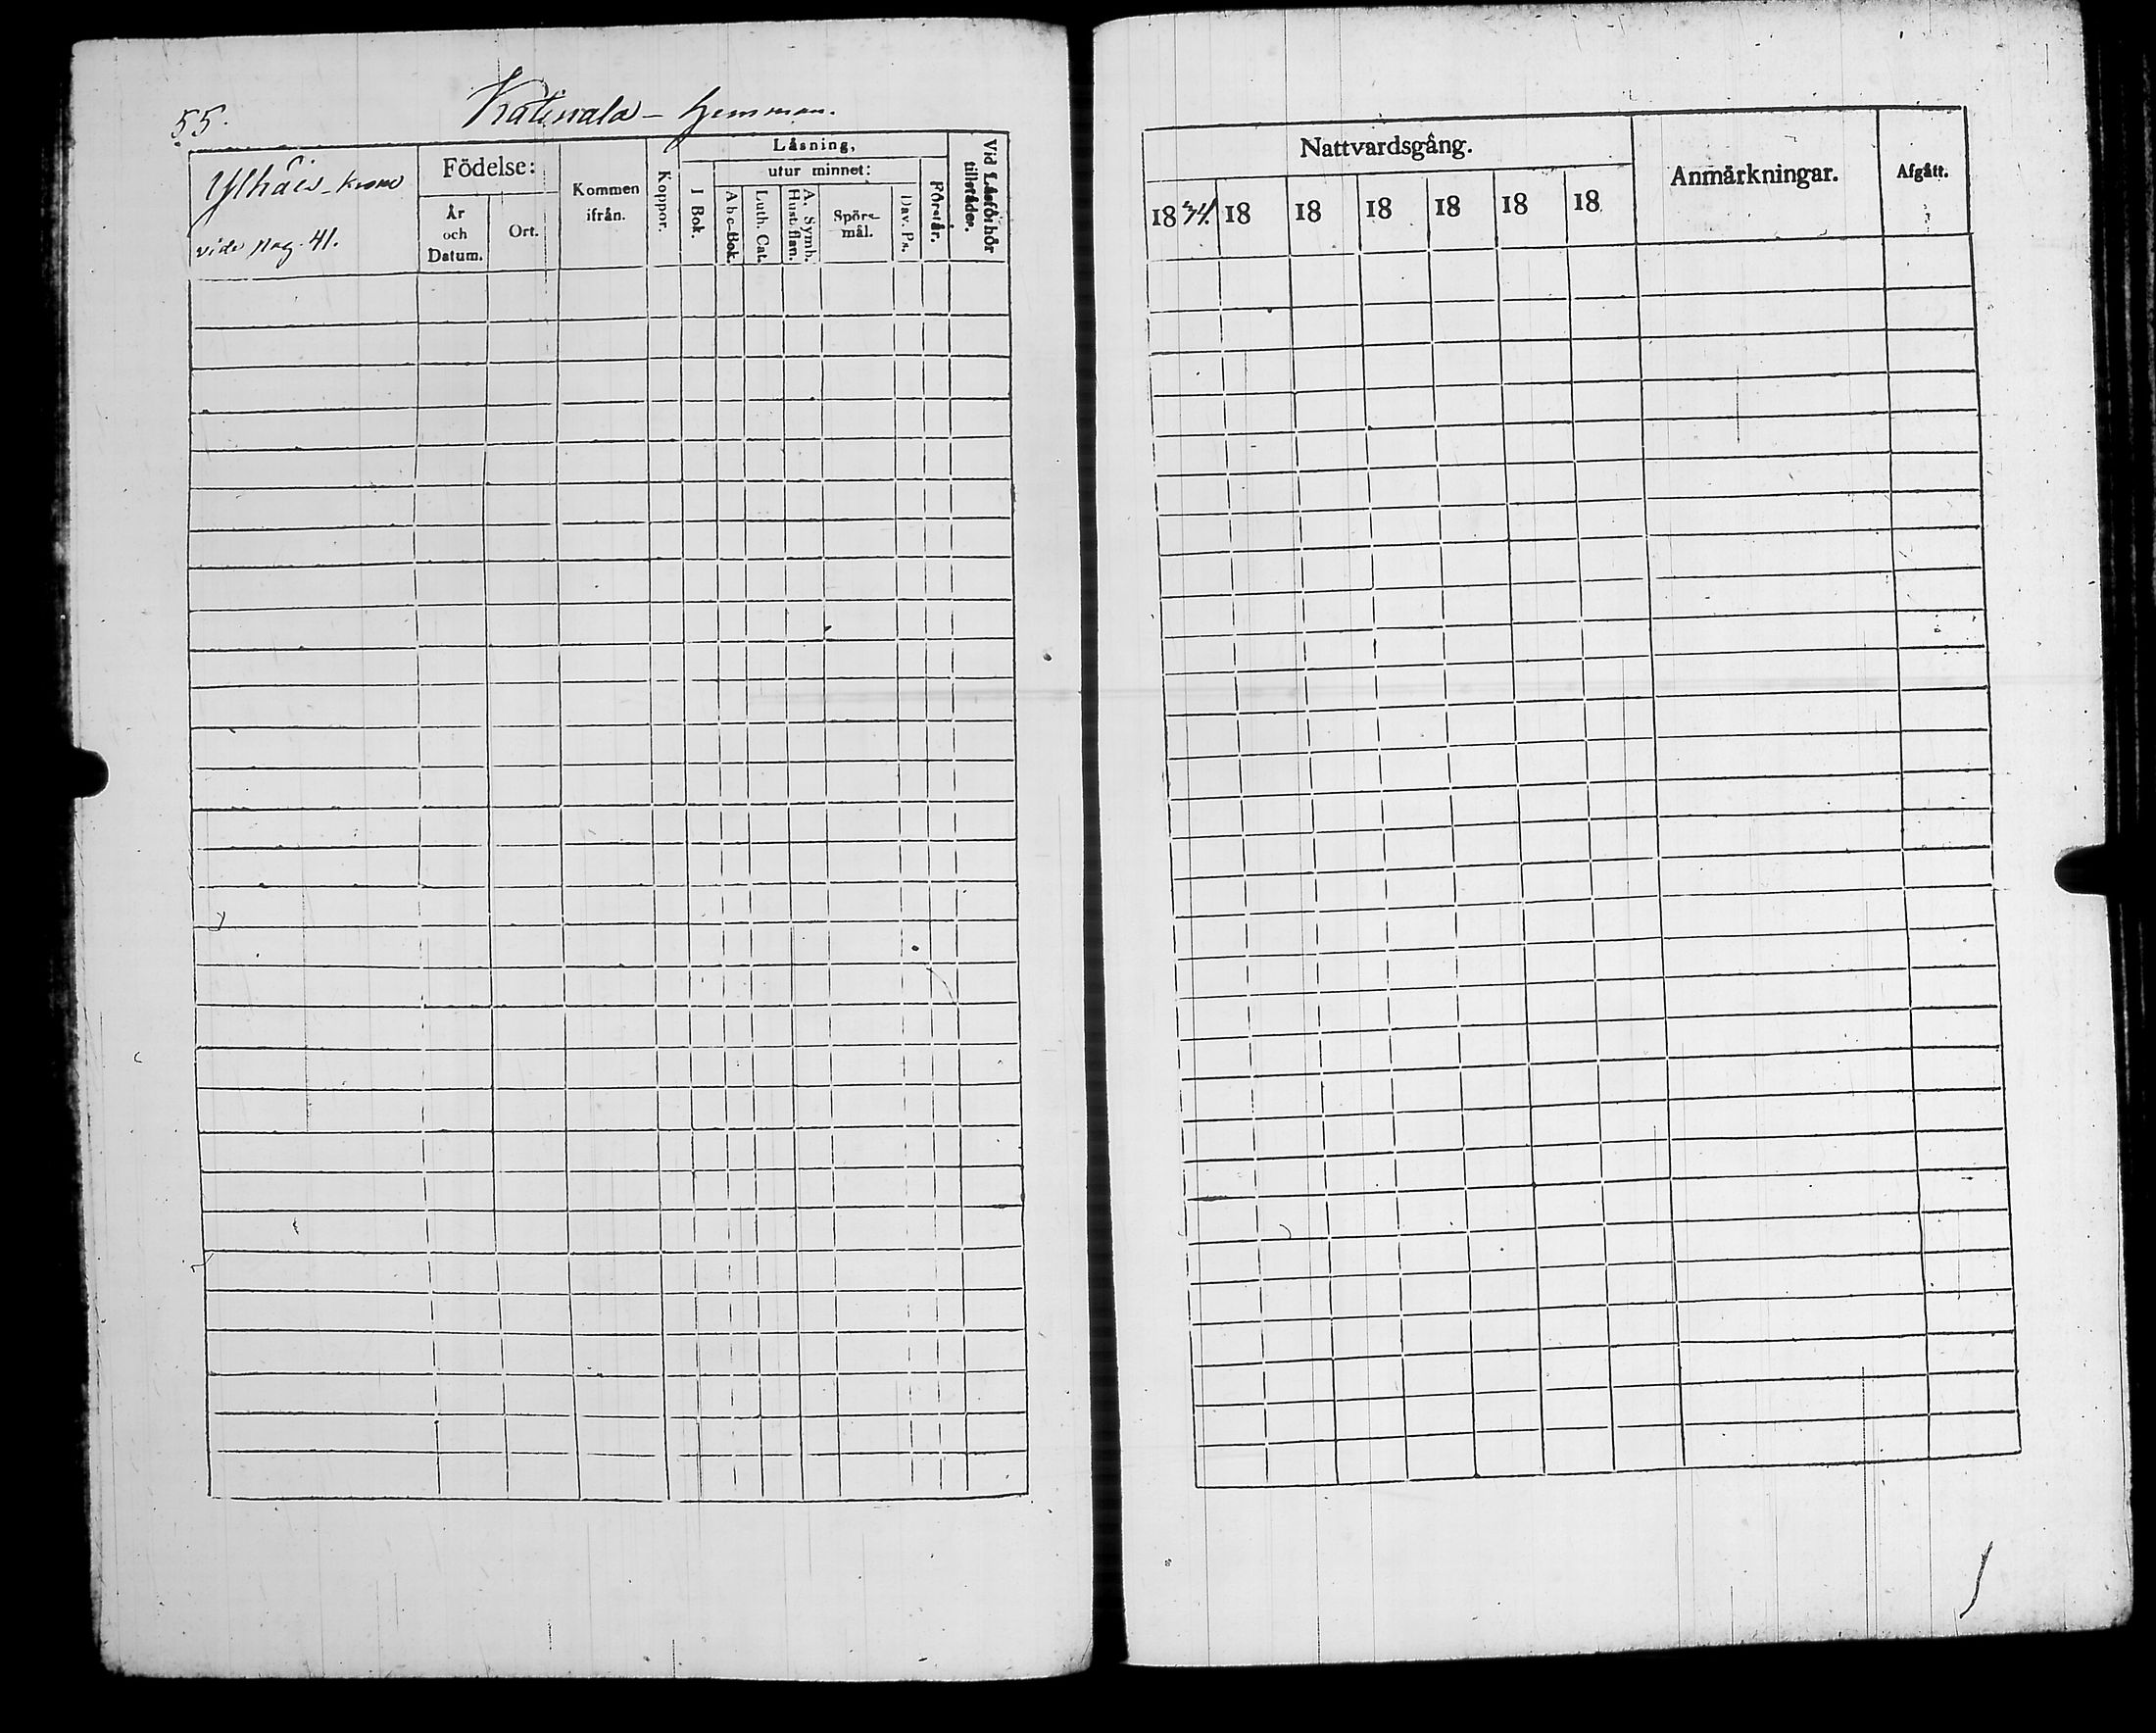 55.
hemman.
Ylhäis - Krono
vide pag. 41.
Födelse:
År och Datum.
Ort.
Kommen ifrån.
Koppor.
Läsning,
I Bok.
utur minnet:
Abc-Bok.
Luth. Cat.
A. Symb. Hust. flan.
Spörs-mål.
Dav. Ps.
Förstår.
Vid Läsförhör tillstådes.
Nattvardsgång.
18 34. 18 18 18 18 18 18
Anmärkningar.
Afgått.